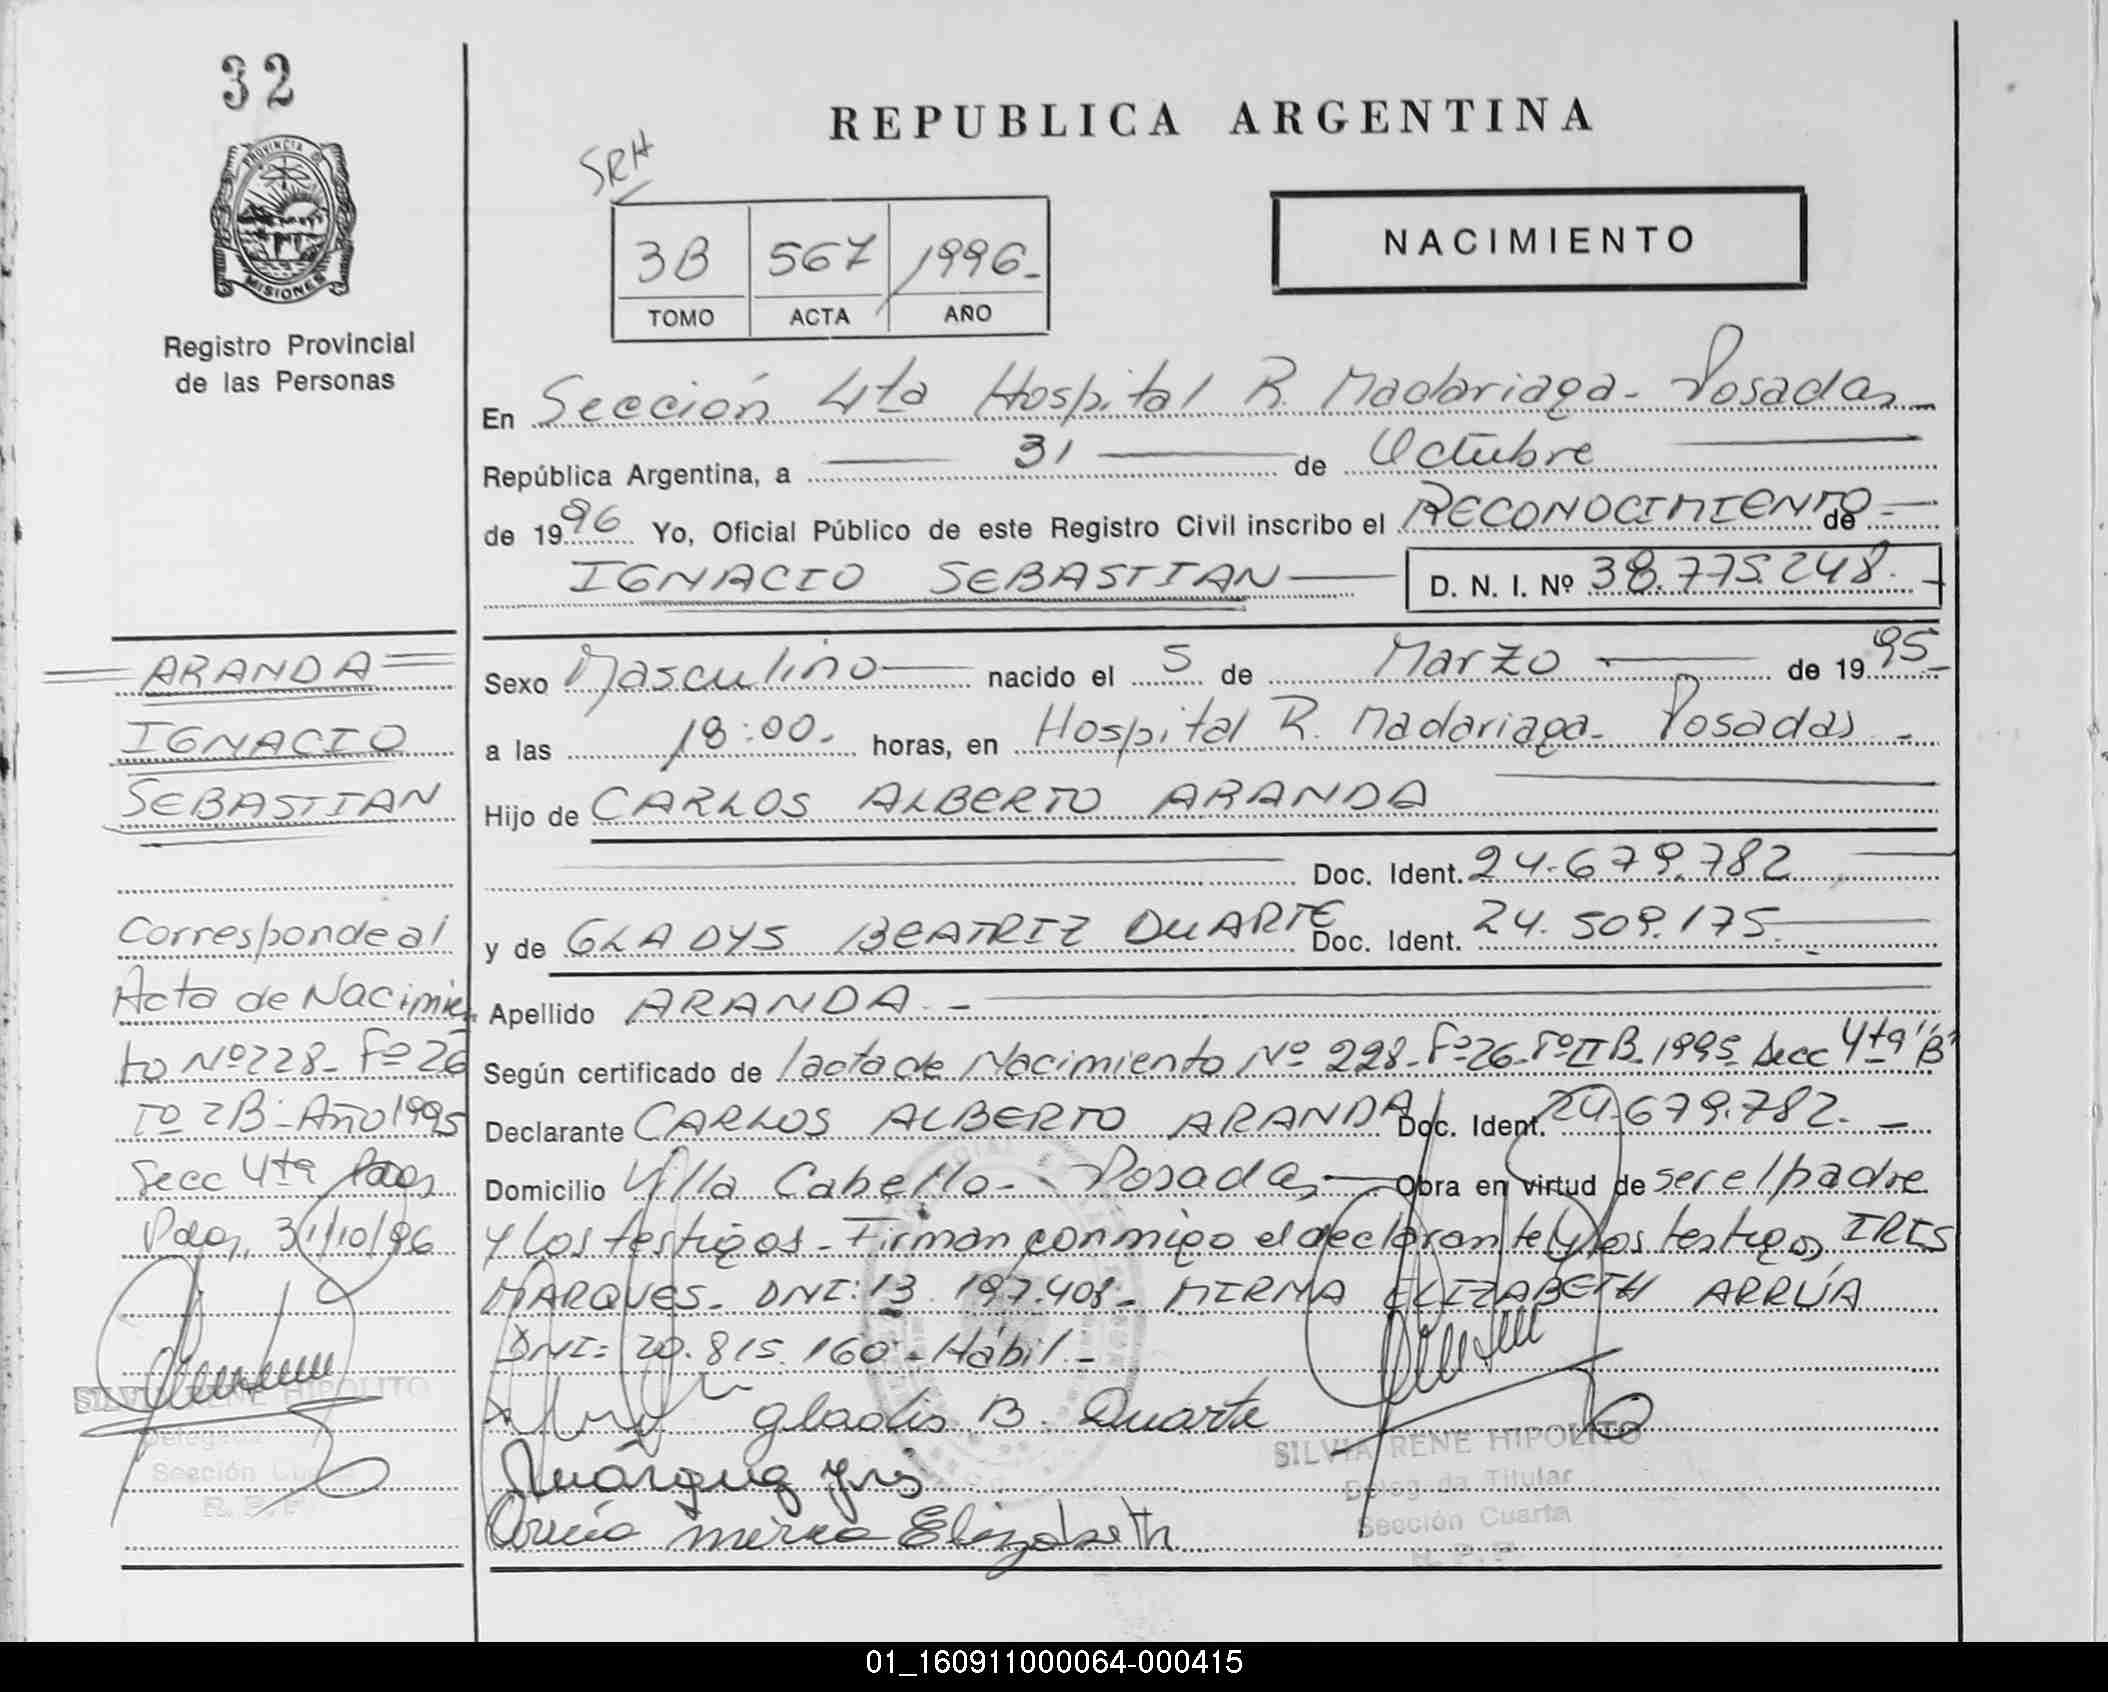 32
PROVINCIA DE
MISIONES
Registro Provincial
de las Personas
REPUBLICA ARGENTINA
SRH
3B 567 1996-
TOMO ACTA AÑO
NACIMIENTO
En Sección 4ta Hospital R. Madariaga - Posadas -
República Argentina, a 31 de Octubre
de 1996 Yo, Oficial Público de este Registro Civil inscribo el RECONOCIMIENTO de
IGNACIO SEBASTIAN D. N. I. Nº 38.775.248.-
ARANDA
IGNACIO
SEBASTIAN
Corresponde al
Acta de Nacimien
to Nº 228- Fº 26
Tº 2B- Año 1995
Secc 4ta Pdas
Pdas, 31/10/96
SILVIA RENE HIPOLITO
Delegada
Sección Cuarta
R. P. P.
Sexo Masculino nacido el 5 de Marzo de 1995-
a las 18:00- horas, en Hospital R. Madariaga- Posadas -
Hijo de CARLOS ALBERTO ARANDA
Doc. Ident. 24.679.782
y de GLADYS BEATRIZ DUARTE Doc. Ident. 24.509.175
Apellido ARANDA -
Según certificado de l acta de Nacimiento Nº 228- Fº 26- Tº II B- 1995 Secc 4ta "B"
Declarante CARLOS ALBERTO ARANDA Doc. Ident. 24.679.782. -
Domicilio Villa Cabello- Posadas Obra en virtud de ser el padre
y los testigos- Firman conmigo el declarante y los testigos, IRIS
MARQUES- DNI: 13.197.408- MIRNA ELIZABETH ARRÚA
DNI: 20.815.160- Hábil-
gladis B. Duarte
Márquez Iris
Arrúa Mirna Elizabeth
SILVIA RENE HIPOLITO
Delegada Titular
Sección Cuarta
R. P. P.
01_160911000064-000415